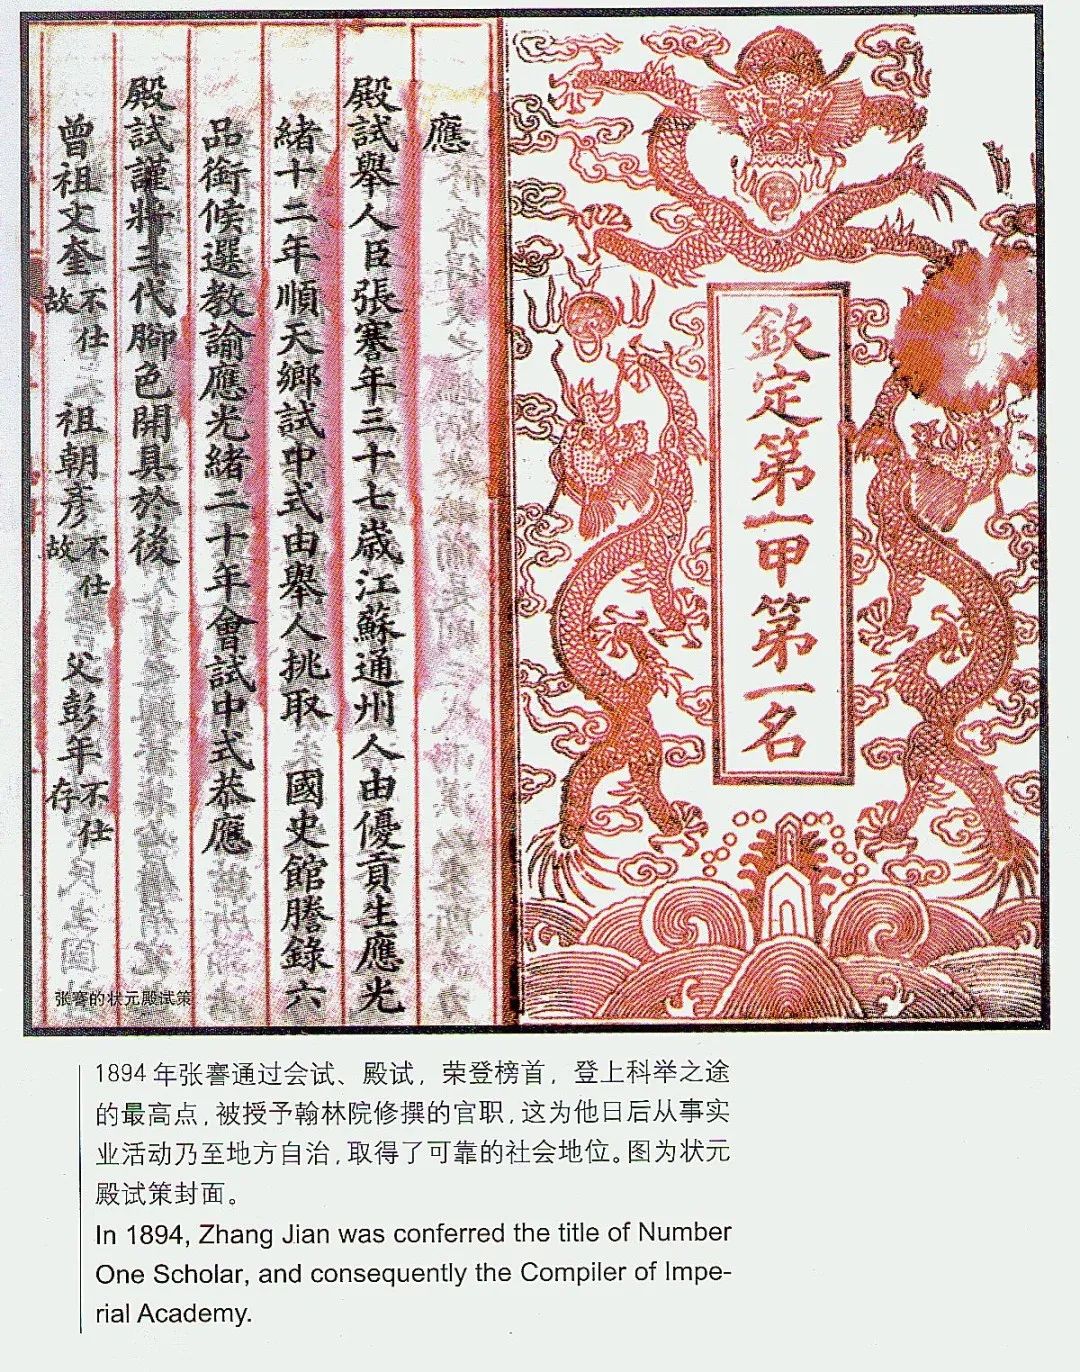 欽定第一甲第一名
應
殿試舉人臣張謇年三十七歲江蘇通州人由優貢生應光
緒十二年順天鄉試中式由舉人挑取 國史館謄錄六
品銜候選教諭應光緒二十年會試中式恭應
殿試謹將三代腳色開具於後
曾祖文奎不仕故 祖朝彥不仕故 父彭年不仕存
张謇的状元殿试策
1894年张謇通过会试、殿试，荣登榜首，登上科举之途
的最高点，被授予翰林院修撰的官职，这为他日后从事实
业活动乃至地方自治，取得了可靠的社会地位。图为状元
殿试策封面。
In 1894, Zhang Jian was conferred the title of Number
One Scholar, and consequently the Compiler of Impe-
rial Academy.